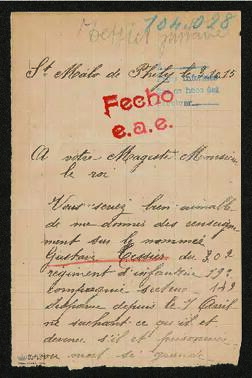 104028
St Malo de Phily le 8 . 15
Fecho
e.a.e.
A votre Magesté Monsieur
le roi
Vous seriez bien aimable
de me donner des renseigne
ment sur le nommé
Gustave Tessier du 202
regiment d'infanterie 19e
compagnie secteur
disparu depuis le 7 Avril
ne sachant ce qu'il est
devenu s'il est prisonnier
ou mort sa grande